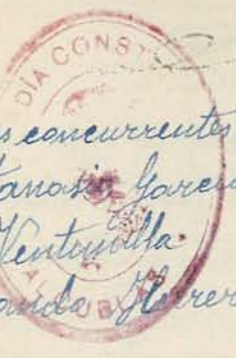 DÍA CONST
s concurrentes
tanasio Garcia
Ventanilla
ando Herrer